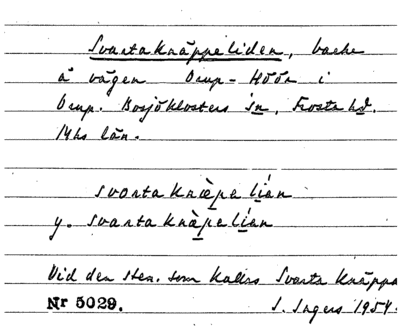 Svarta Knäppeliden, backe
å vägen Orup - Höör i
Orup. Bosjöklosters sn, Frosta hd.
Mhs län.
svarta knæ̀pe líən
y. svarta knàpelíən
Vid den sten. som kallas Svarta Knäppa
Nr 5029. I. Ingers 1954.